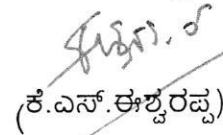 (ಕೆ.ಎಸ್.ಈಶ್ವರಪ್ಪ)